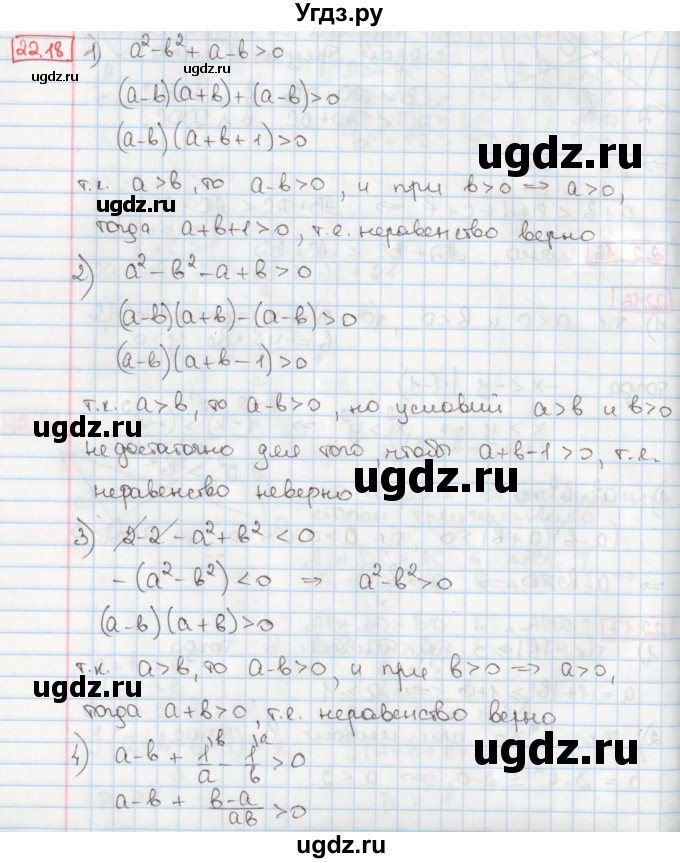 Угдз.ру
22.18 1) a² - b² + a - b > 0
ugdz.ru
ugdz.ru
(a-b)(a+b) + (a-b) > 0
(a-b)(a+b+1) > 0
ugdz.ru
т.к. a > b, то a-b > 0, и при b > 0 ⇒ a > 0,
ugdz.ru
тогда a+b+1 > 0, т.е. неравенство верно
2) a² - b² - a + b > 0
(a-b)(a+b) - (a-b) > 0
ugdz.ru
(a-b)(a+b-1) > 0
т.к. a > b, то a-b > 0, но условий a > b и b > 0
ugdz.ru
недостаточно для того, чтобы a+b-1 > 0, т.е.
ugdz.ru
неравенство неверно
3) 2-2-a²+b² < 0
-(a²-b²) < 0 ⇒ a²-b² > 0
(a-b)(a+b) > 0
ugdz.ru
т.к. a > b, то a-b > 0, и при b > 0 ⇒ a > 0,
ugdz.ru
тогда a+b > 0, т.е. неравенство верно
4) a-b + 1/a - 1/b > 0
ugdz.ru
a-b + (b-a)/ab > 0
ugdz.ru
ugdz.ru